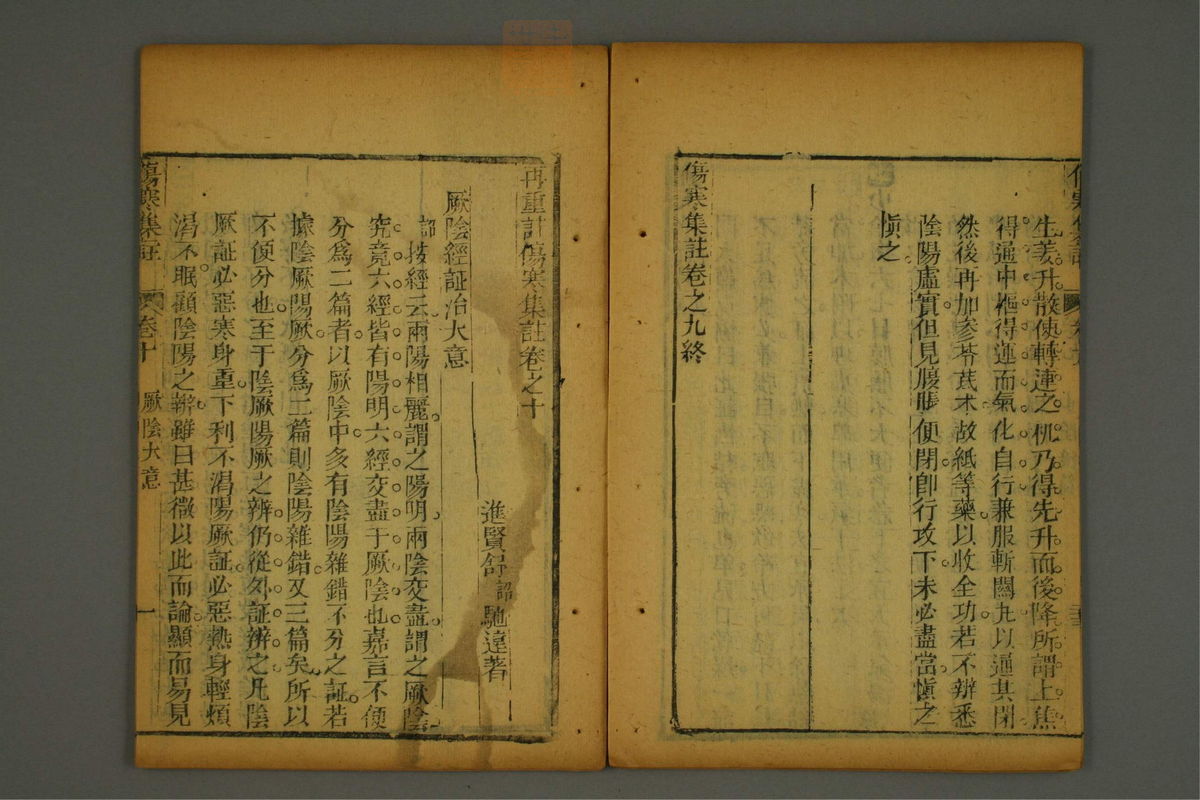 傷寒集註
生姜升散使轉運之机乃得先升而後降所謂上焦
得通中樞得運而氣化自行兼服斬關丸以通其閉
然後再加參苓茋朮故紙等藥以收全功若不辨悉
陰陽虛實但見腹脹便閉卽行攻下未必盡當愼之
愼之
傷寒集註卷之九終
再重訂傷寒集註卷之十
進賢舒詔馳遠著
厥陰經証治大意
詔按經云兩陽相麗謂之陽明兩陰交盡謂之厥陰
究竟六經皆有陽明六經交盡于厥陰也嘉言不便
分爲二篇者以厥陰中多有陰陽雜錯不分之証若
據陰厥陽厥分爲二篇則陰陽雜錯又三篇矣所以
不便分也至于陰厥陽厥之辨仍從外証辨之凡陰
厥証必惡寒身重下利不渴陽厥証必惡熱身輕煩
渴不眠顧陰陽之辨雖曰甚微以此而論顯而易見
傷寒集註
卷十
厥陰大意
一